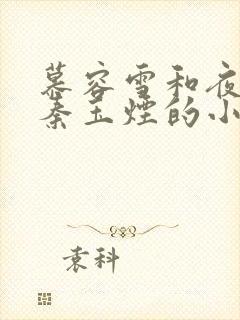 慕容雪和夜
秦玉煙的小
袁科